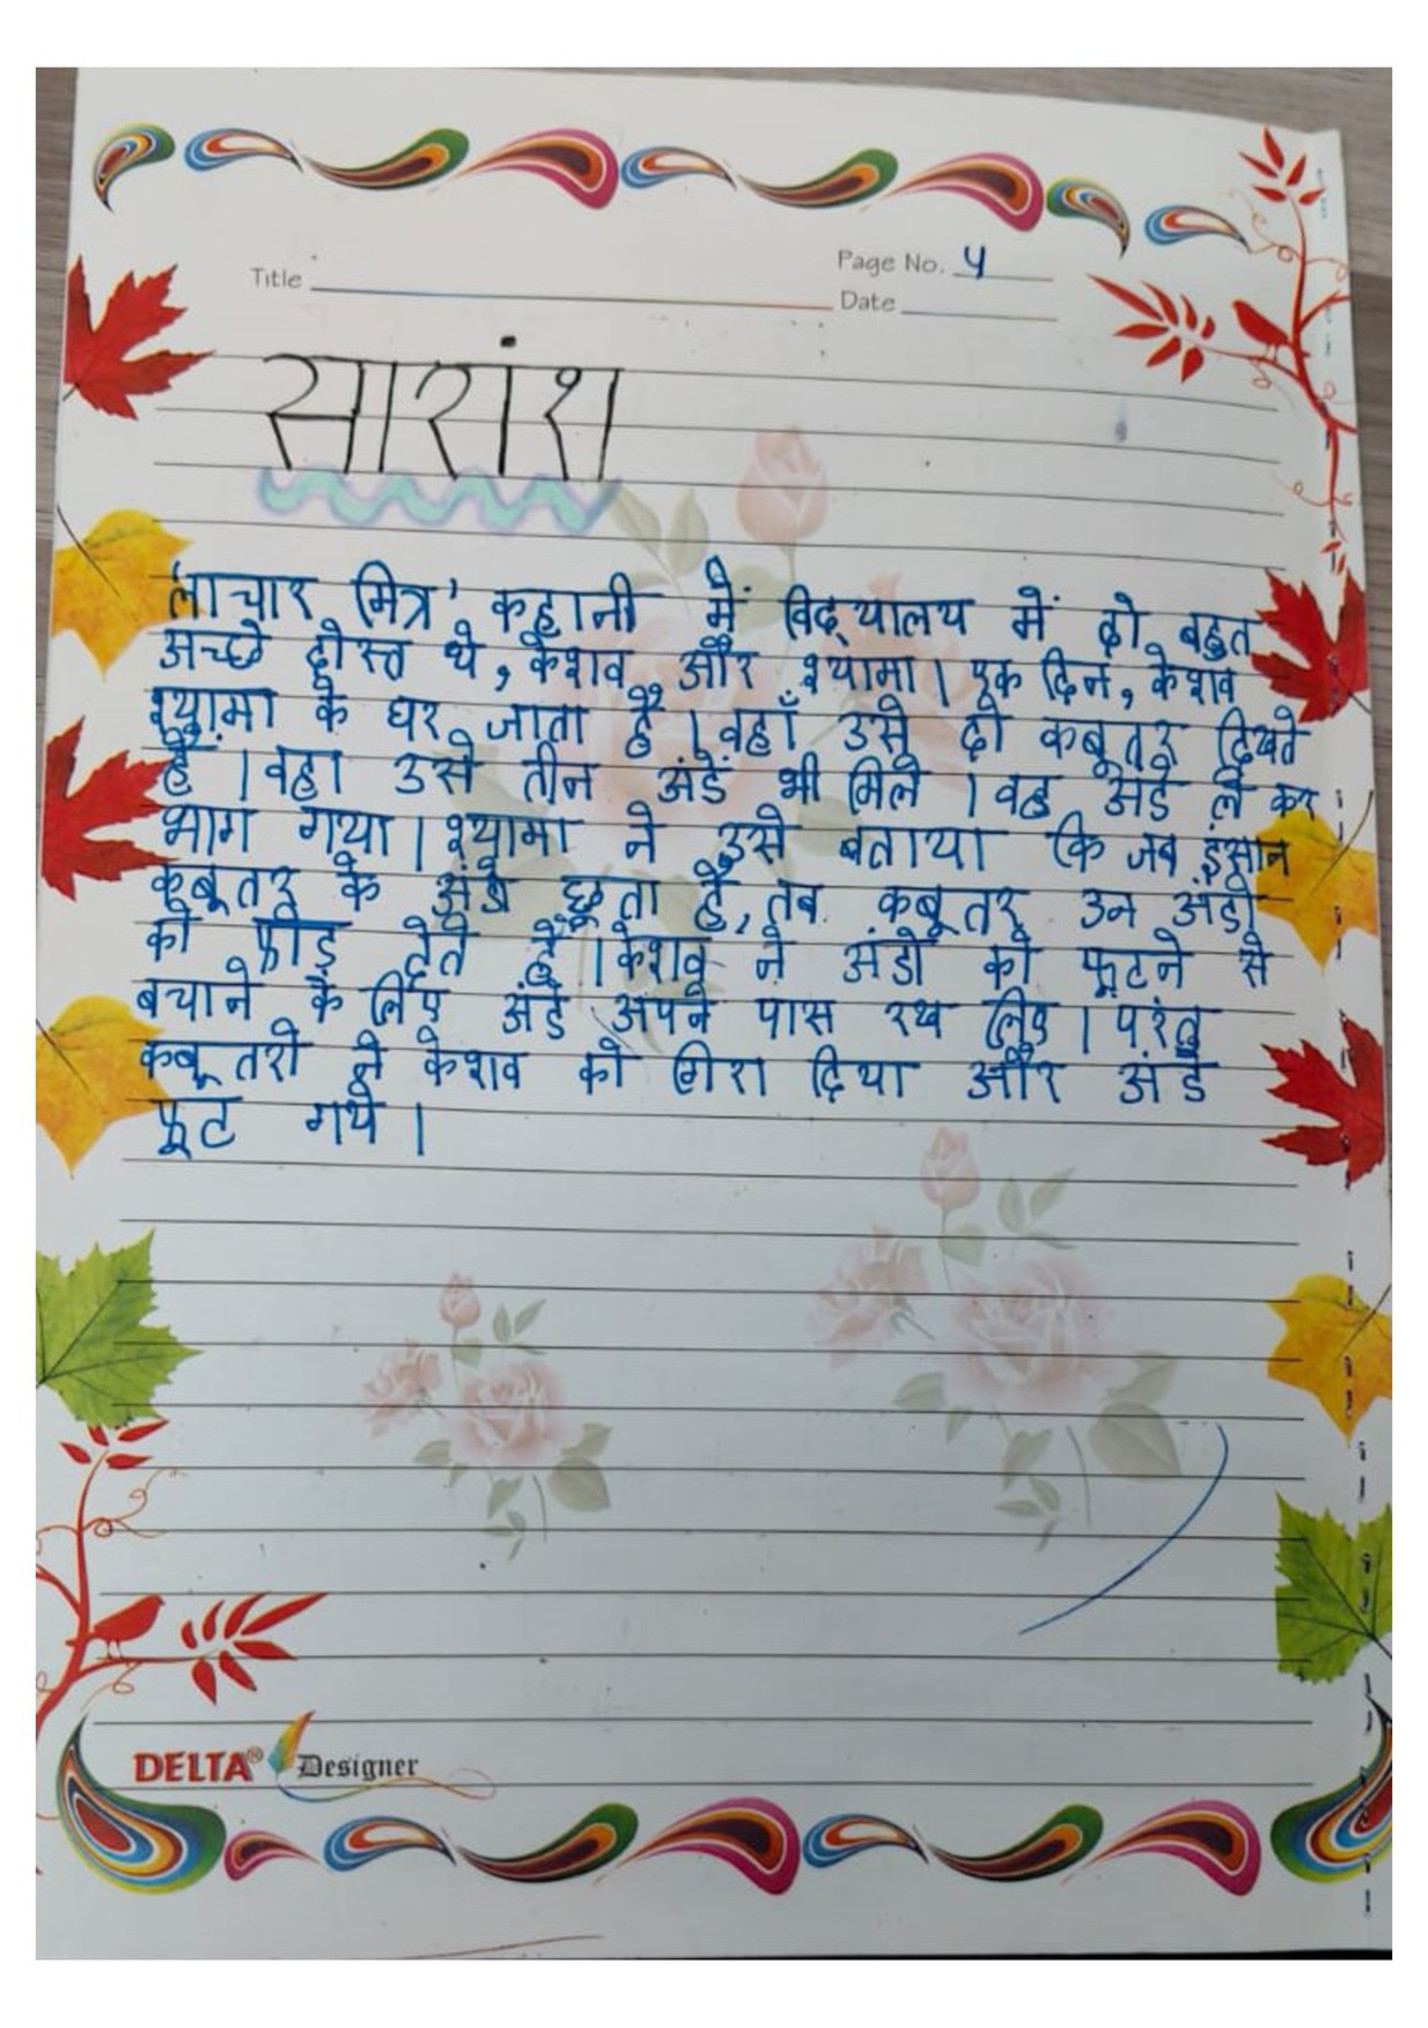 Page No. 4
Title
Date
सारांश
'लाचार मित्र' कहानी में विद्यालय में दो बहुत
अच्छे दोस्त थे, केशव और श्यामा। एक दिन, केशव
श्यामा के घर जाता है। वहाँ उसे दो कबूतर दिखते
हैं। वहा उसे तीन अंडें भी मिले। वह अंडे ले कर
भाग गया। श्यामा ने उसे बताया कि जब इंसान
कबूतर के अंडे छूता है, तब कबूतर उन अंडो
को फोड़ देते हैं। केशव ने अंडो को फूटने से
बचाने के लिए अंडे अपने पास रख लिए। परंतु
कबूतरो ने केशव को गिरा दिया और अंडे
फूट गये।
DELTA® Designer